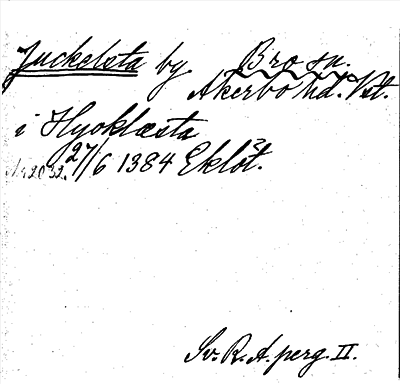 Juckelsta by. Bro sn.
Åkerbo hd. Vstl.
i Hyoklæsta
27/6 1384 Eklöt.
Sv. R. A. perg. II.